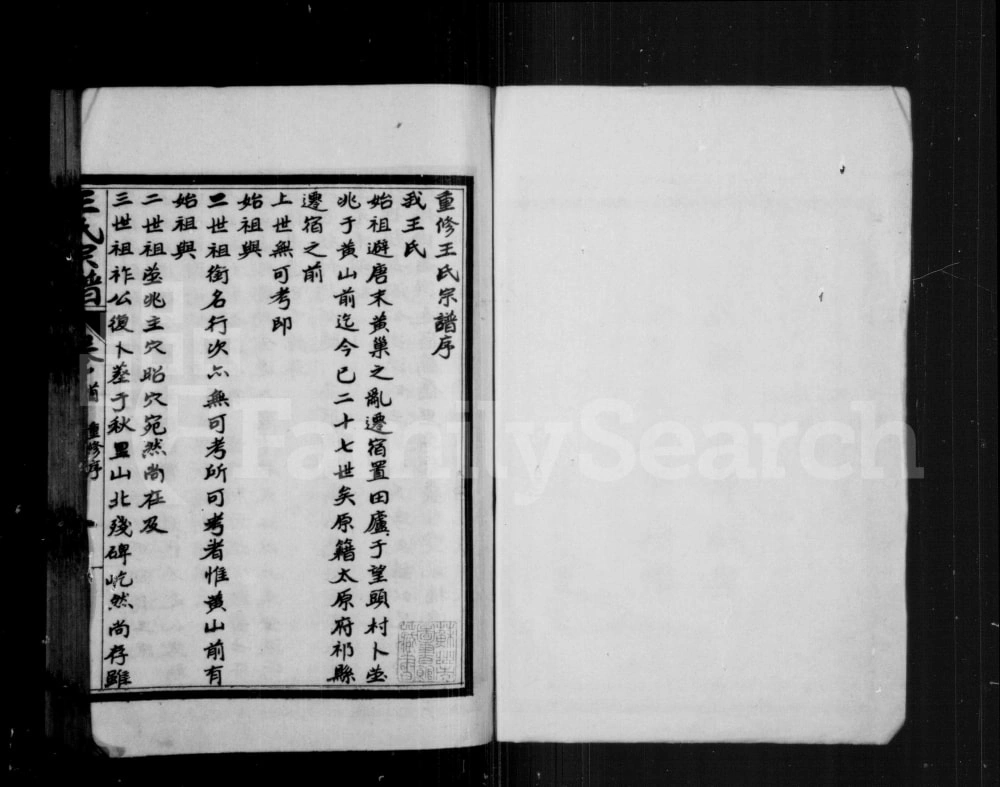 重修王氏宗譜序
我王氏
始祖避唐末黃巢之亂遷宿置田廬于望頭村卜塋
兆于黃山前迄今已二十七世矣原籍太原府祁縣
遷宿之前
上世無可考即
始祖與
二世祖銜名行次亦無可考所可考者惟黃山前有
始祖與
二世祖塋兆主穴昭穴宛然尚在及
三世祖祚公復卜塟于秋里山北殘碑屹然尚存雖
王氏宗譜
卷首
重修序
一
FamilySearch